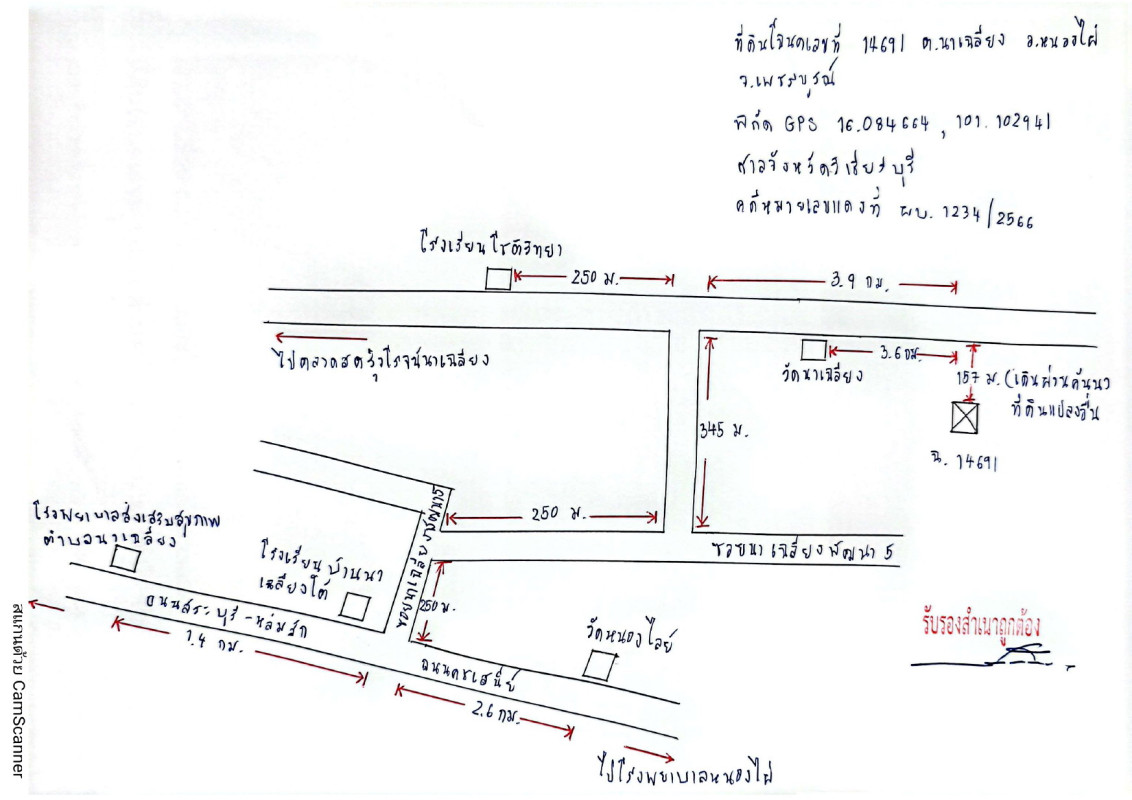 ที่ดินโฉนดเลขที่ 14691 ต.นาเฉลียง อ.หนองไผ่
จ.เพชรบูรณ์
พิกัด GPS 16.084664 , 101.102941
ศาลจังหวัดวิเชียรบุรี
คดีหมายเลขแดงที่ ผบ. 1234/2566
โรงเรียนโชติวิทยา
250 ม.
3.9 กม.
ไปตลาดสดรุ่งโรจน์นาเฉลียง
วัดนาเฉลียง
3.6 กม.
157 ม. (เดินผ่านคันนา
ที่ดินแปลงอื่น
ฉ. 14691
345 ม.
250 ม.
ซอยนาเฉลียงพัฒนา 5
ซอยนาเฉลียงพัฒนา 5
โรงพยาบาลส่งเสริมสุขภาพ
ตำบลนาเฉลียง
โรงเรียนบ้านนา
เฉลียงใต้
250 ม.
ถนนสระบุรี-หล่มสัก
1.4 กม.
วัดหนองไลย์
ถนนคชเสนีย์
2.6 กม.
ไปโรงพยาบาลหนองไผ่
รับรองสำเนาถูกต้อง
สแกนด้วย CamScanner